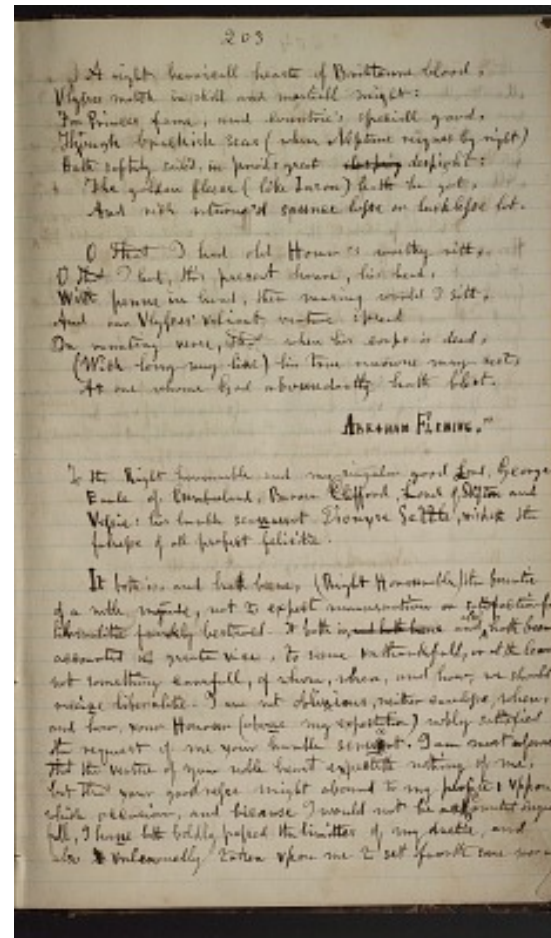 203
A right heroicall hearte of Brittanne blood,
Vlysses match in skill and martiall might:
For Princes fame, and countrie's speciall good,
Through brackish seas (where Neptune reignes by right)
Hath safely saild, in perils great despight:
The golden fleece (like Iason) hath he got,
And rich returned saunce losse or lucklesse lot.
O that I had old Homer's worthy witt,
O that I had, this present houre, his head,
With penne in hand, then musing would I sitt,
And our Vlysses' valiant venture spread
In vaunting verse, that when his corps is dead,
(With long may live) his true renowne may rest,
As one whome God aboundantly hath blest.
ABRAHAM FLEMING."
To the Right honourable and my singular good Lord, George
Earle of Cumberland, Baron Clifford, Lord of and
Vessie: his humble seruaunt Dionyse Settle, wisheth the
of all perfect felicitie.
It both is, and hath beene, (Right Honourable) the
of a noble minde, not to expect remuneration or satisfaction for
liberalitie frankly bestowed. It both is and hath been
accounted as greate vice, to seeme vnthankfull, or at the least
not something carefull, of whom, when, and how, we should
receiue liberalitie. I am not obliuious, neither carelesse, when,
and how, your Honour (aboue my expectation) nobly satisfied
the request of me your humble seruaunt. I am most assured
that the vertue of your noble heart expecteth nothing of me,
but that your goodnesse might abound to my profite: vppon
which occasion, and because I would not be accounted
I haue both boldly passed the limittes of my duetie, and
also taken vpon me to set foorth some